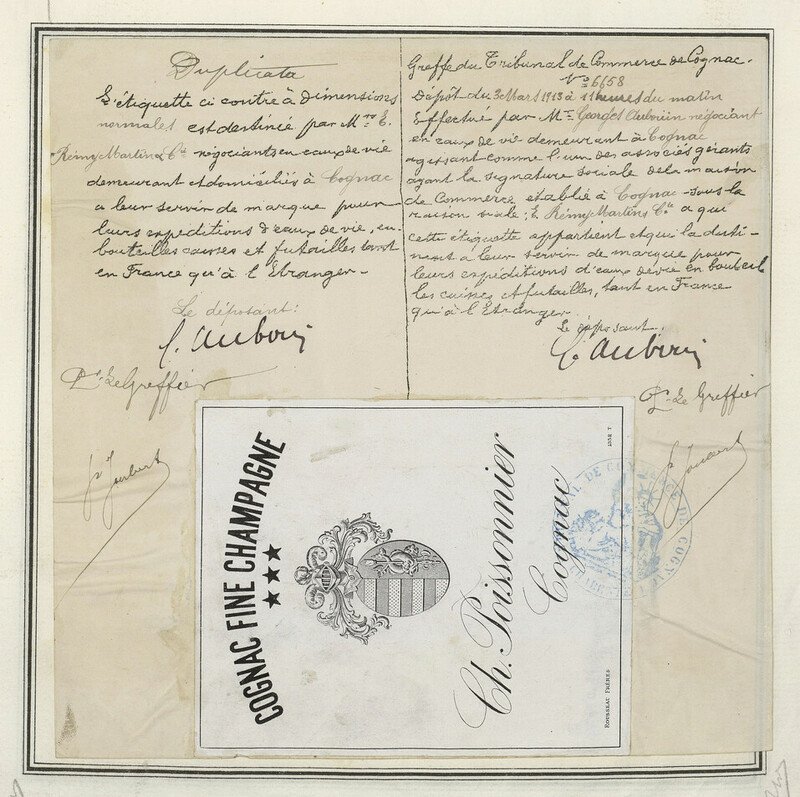 Duplicata
L'étiquette ci contre à dimensions
normales est destinée par Mrs E.
Rémy Martin & Cie négociants en eaux de vie
demeurant et domiciliés à Cognac
a leur servir de marque pour
leurs expéditions d'eaux de vie, en
bouteilles caisses et futailles tant
en France qu'à l'Etranger -
Le déposant:
Pr Le Greffier
Greffe du Tribunal de Commerce de Cognac.
No 6658
Dépôt du 3 Mars 1913 à 11 heures du matin
Effectué par Mr Georges Auboin négociant
en eaux de vie demeurant à Cognac
agissant comme l'un des associés gérants
ayant la signature sociale de la maison
de Commerce établie à Cognac - sous la
raison sociale: E. Rémy Martin & Cie a qui
cette étiquette appartient et qui la desti-
nent a leur servir de marque pour
leurs expéditions d'eaux de vie en bouteil
les caisses et futailles, tant en France
qu'à l'Etranger
Le déposant.
Pr Le Greffier
COGNAC FINE CHAMPAGNE
★★★
Ch. Poissonnier
Cognac
ROUSSEAU FRÈRES